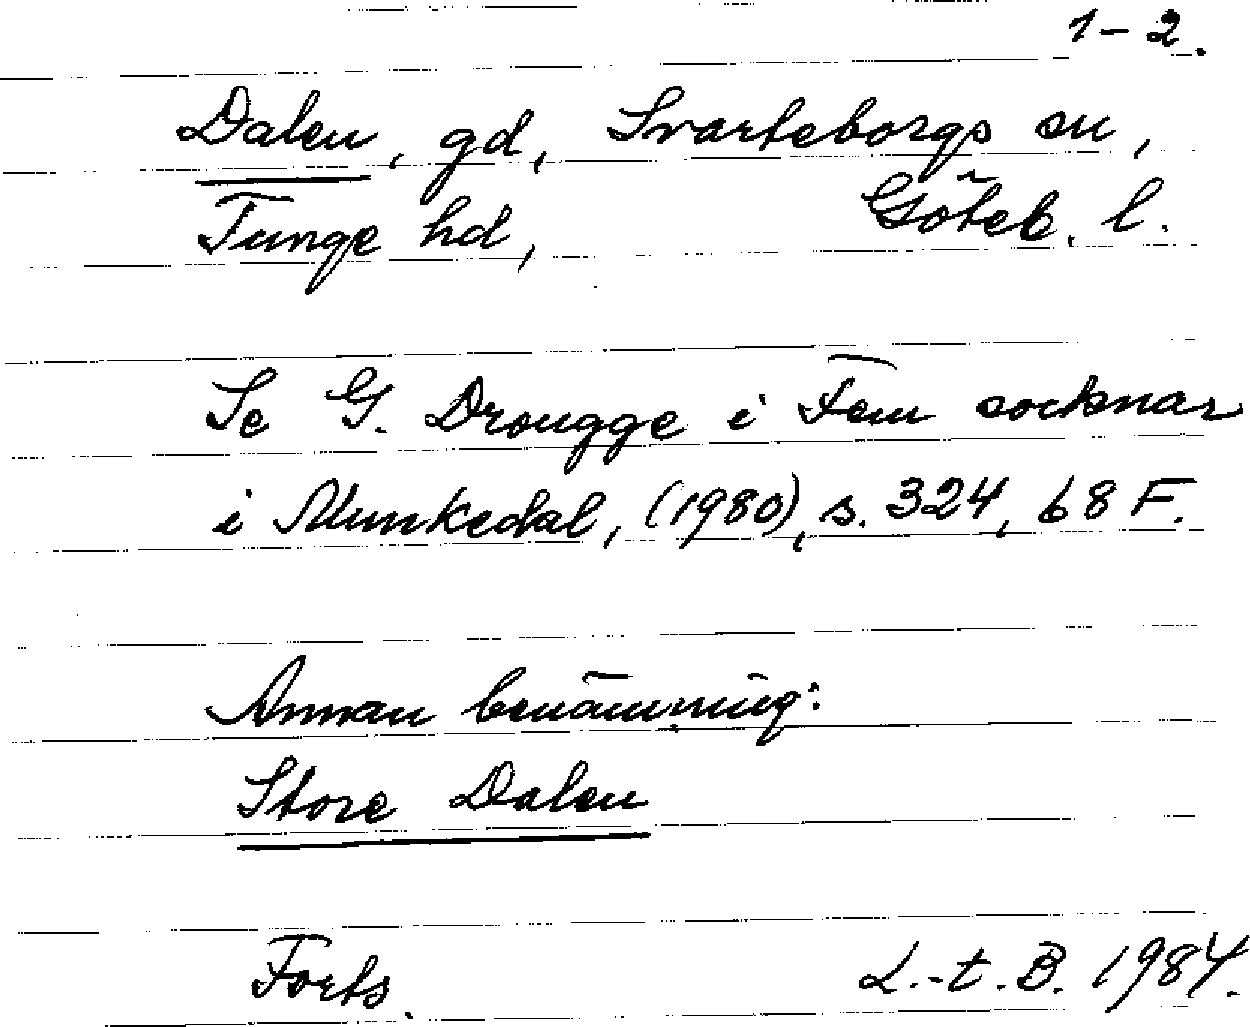 1-2.
Dalen, gd, Svarteborgs sn,
Tunge hd, Göteb. l.
Se G. Drougge i Fem socknar
i Munkedal, (1980), s. 324, 68 F.
Annan benämning:
Store Dalen
Forts. L.-t. B. 1984.